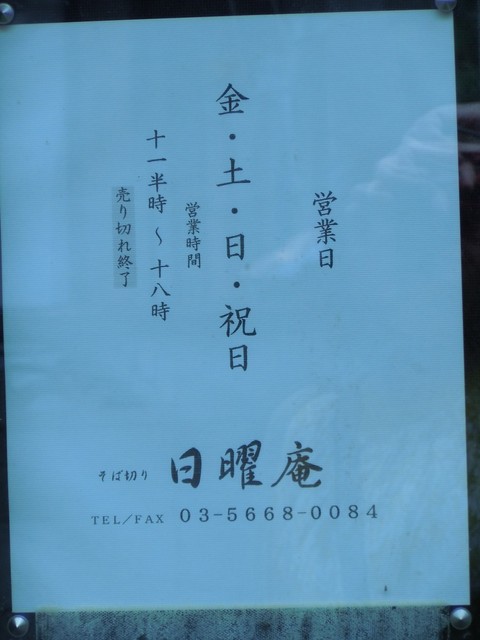 営業日
金・土・日・祝日
営業時間
十一半時～十八時
売り切れ終了
そば切り 日曜庵
TEL／FAX 03-5668-0084